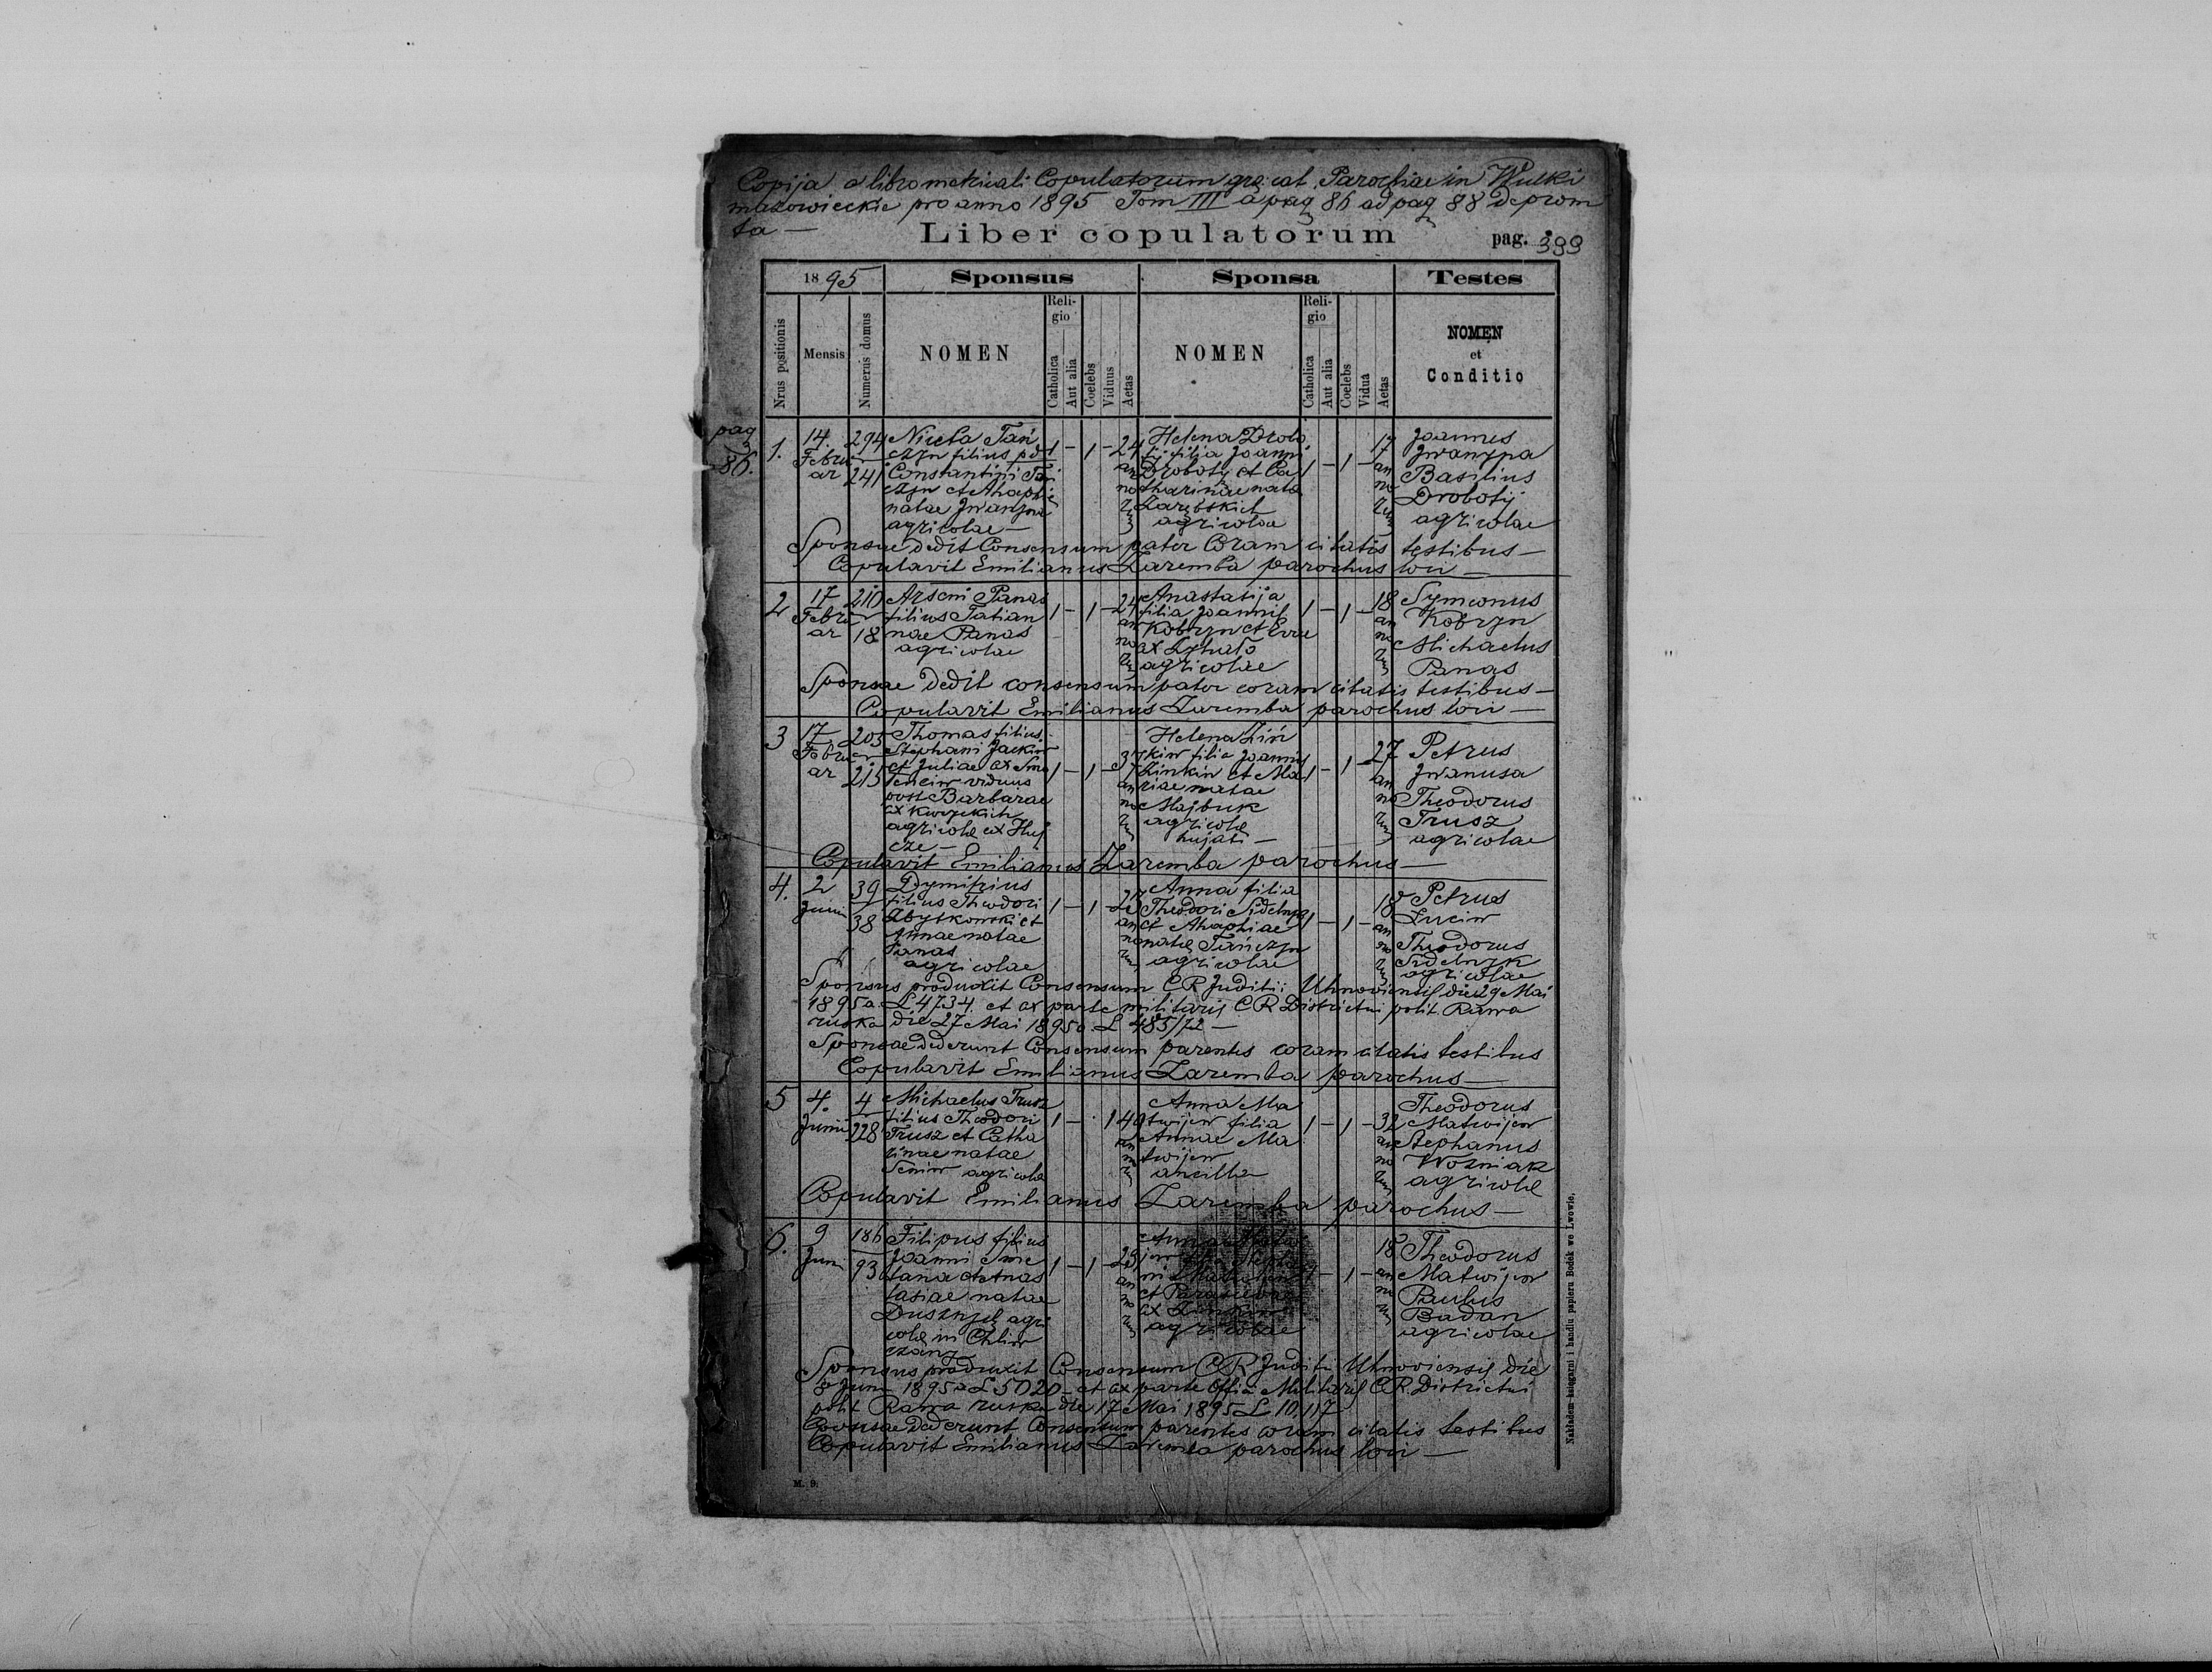 Copija a libro metricali Copulatorum gr: cat. Parochiae in Wulki
mazowieckie pro anno 1895 Tom III a pag 86 ad pag 88 deprom
ta —
Liber copulatorum pag. 399
1895 Sponsus Sponsa Testes
Nrus positionis Mensis Numerus domus NOMEN Religio Catholica Aut alia Coelebs Viduus Aetas NOMEN Religio Catholica Aut alia Coelebs Vidua Aetas NOMEN et Conditio
pag 86.
1. 14. Februar 294 241
Niceta Tań
czyn filius pd
Constantini Tań
czyn et Ahaphie
natae Iwanyna
agricolae —
1 — 1 — 24 annorum
Helena Drobo
tij filia Joanni
Drobotij et Ca
tharinae nata
Zarębskich
agricolae
1 — 1 — 17 annorum
Joannes
Iwanypa
Basilius
Drobotij
agricolae
Sponsae dedit Consensum pater Coram citatis testibus —
Copulavit Emilianus Zaremba parochus loci —
2 17 Februar 210 18
Arseni Panas
filius Tatian
nae Panas
agricolae
1 — 1 — 24 annorum
Anastasija
filia Joannis
Kobryn et Evae
ex
agricolae
1 — 1 — 18 annorum
Symeonus
Kobryn
Michaelus
Panas
Sponsae dedit consensum pater coram citatis testibus —
Copulavit Emilianus Zaremba parochus loci —
3 17 Februar 203 215
Thomas filius
Stephani Jackiw
et Juliae ex
viduus
post Barbarae
ex
agricolae ex Huj
cze —
1 — 1 — 37 annorum
Helena Ziń
kiw filia Joannis
Zinkiw et Ma
riae natae
Majbuk
agricolae
hujati —
1 — 1 — 27 annorum
Petrus
Iwanusa
Theodorus
Trusz
agricolae
Copulavit Emilianus Zaremba parochus —
4. 2 Junii 39 38
Dymitrius
filius Theodori
Abytkowski et
Annae natae
Panas
agricolae
1 — 1 — annorum
Anna filia
Theodori Sidelnyk
et Ahaphiae
natae Tańczyn
agricolae
1 — 1 — 18 annorum
Petrus
Luciw
Theodorus
Sidelnyk
agricolae
Sponsus produxit Consensum C R Juditii Uhnoviensis die 29 Mai
1895 a. L 4734. et ex parte militaris C R Districtui polit. Rawa
ruska die 27 Mai 1895 a. L 485/72 —
Sponsae dederunt Consensum parentes coram citatis testibus
Copulavit Emilianus Zaremba parochus —
5 4. Junii 4 228
Michaelus Trusz
filius Theodori
Trusz et Catha
rinae natae
Seniw agricolae
1 — 1 40 annorum
Anna Ma
twijew filia
Annae Ma
twijew
ancilla
1 — 1 — 32 annorum
Theodorus
Matwijew
Stephanus
Wozniak
agricolae
Copulavit Emilianus Zaremba parochus —
6. 9 Juni 186 93
Filipus filius
Joanni Sme
tana et Anas
tasiae natae
Dusznyk agri
colae in Chliw
czany
1 — 1 — 23 annorum
Anna
et
ex
agricolae
1 — 1 — 18 annorum
Theodorus
Matwijew
Paulus
Badan
agricolae
Sponsus produxit Consensum C R Juditi Uhnoviensis die
8 Juni 1895 a L 5020 — et ex parte Offici Militaris C R. Districtui
polit Rawa ruska die 17 Mai 1895 L 10.117
Sponsae dederunt Consensum parentes coram citatis testibus
Copulavit Emilianus Zaremba parochus loci —
M. 9.
Nakładem księgarni i handlu papieru Bodek we Lwowie.